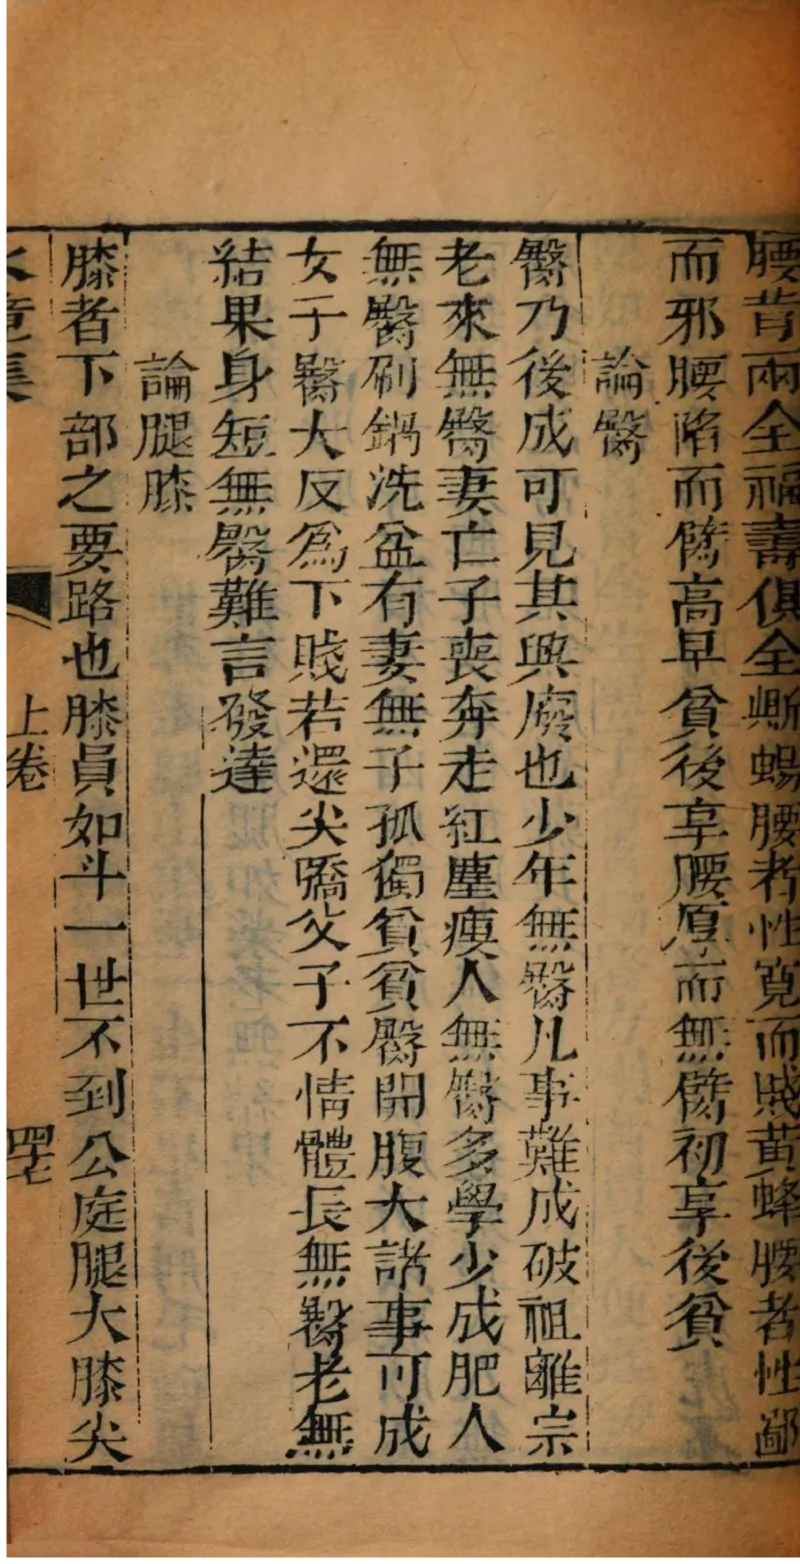 腰背兩全福壽俱全蜥蜴腰者性寬而賤黃蜂腰者性鄙
而邪腰陷而臋高早貧後享腰厚而無臋初享後貧
論臋
臋乃後成可見其興廢也少年無臋凡事難成破祖離宗
老來無臋妻亡子喪奔走紅塵瘦人無臋多學少成肥人
無臋刷鍋洗盆有妻無子孤獨貧貧臋開腹大諸事可成
女子臋大反為下賤若還尖喬父子不情體長無臋老無
結果身短無臋難言發達
論腿膝
膝者下部之要路也膝員如斗一世不到公庭腿大膝尖
水竟集
上卷
四七